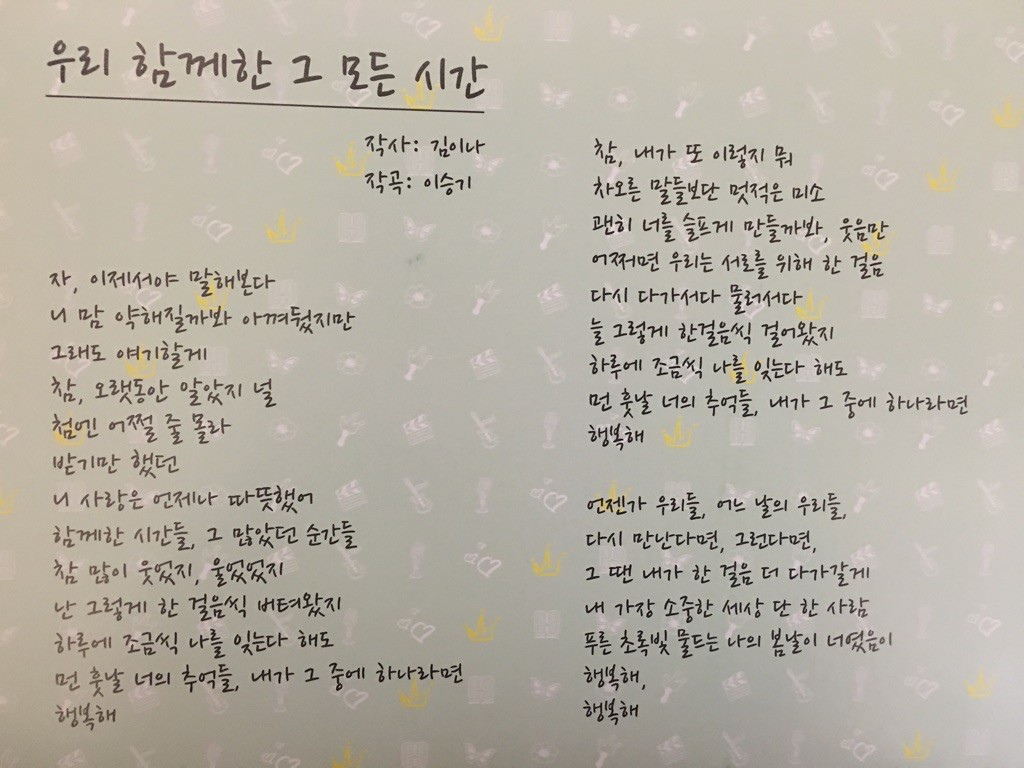 우리 함께한 그 모든 시간
작사: 김이나
작곡: 이승기
자, 이제서야 말해본다
니 맘 약해질까봐 아껴뒀었지만
그래도 얘기할게
참, 오랫동안 알았지 널
첨엔 어쩔 줄 몰라
받기만 했던
니 사랑은 언제나 따뜻했어
함께한 시간들, 그 많았던 순간들
참 많이 웃었지, 울었었지
난 그렇게 한 걸음씩 버텨왔지
하루에 조금씩 나를 잊는다 해도
먼 훗날 너의 추억들, 내가 그 중에 하나라면
행복해
참, 내가 또 이렇지 뭐
차오른 말들보단 멋적은 미소
괜히 너를 슬프게 만들까봐, 웃음만
어쩌면 우리는 서로를 위해 한 걸음
다시 다가서다 물러서다
늘 그렇게 한걸음씩 걸어왔지
하루에 조금씩 나를 잊는다 해도
먼 훗날 너의 추억들, 내가 그 중에 하나라면
행복해
언젠가 우리들, 어느 날의 우리들,
다시 만난다면, 그런다면,
그 땐 내가 한 걸음 더 다가갈게
내 가장 소중한 세상 단 한 사람
푸른 초록빛 물드는 나의 봄날이 너였음이
행복해,
행복해